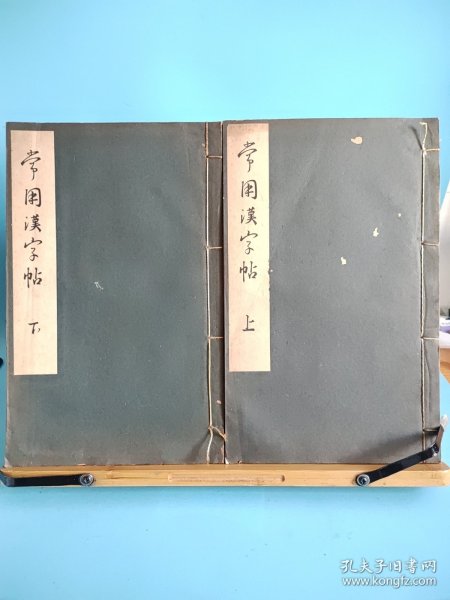 常用漢字帖 下
常用漢字帖 上
孔夫子旧书网
www.kongfz.com